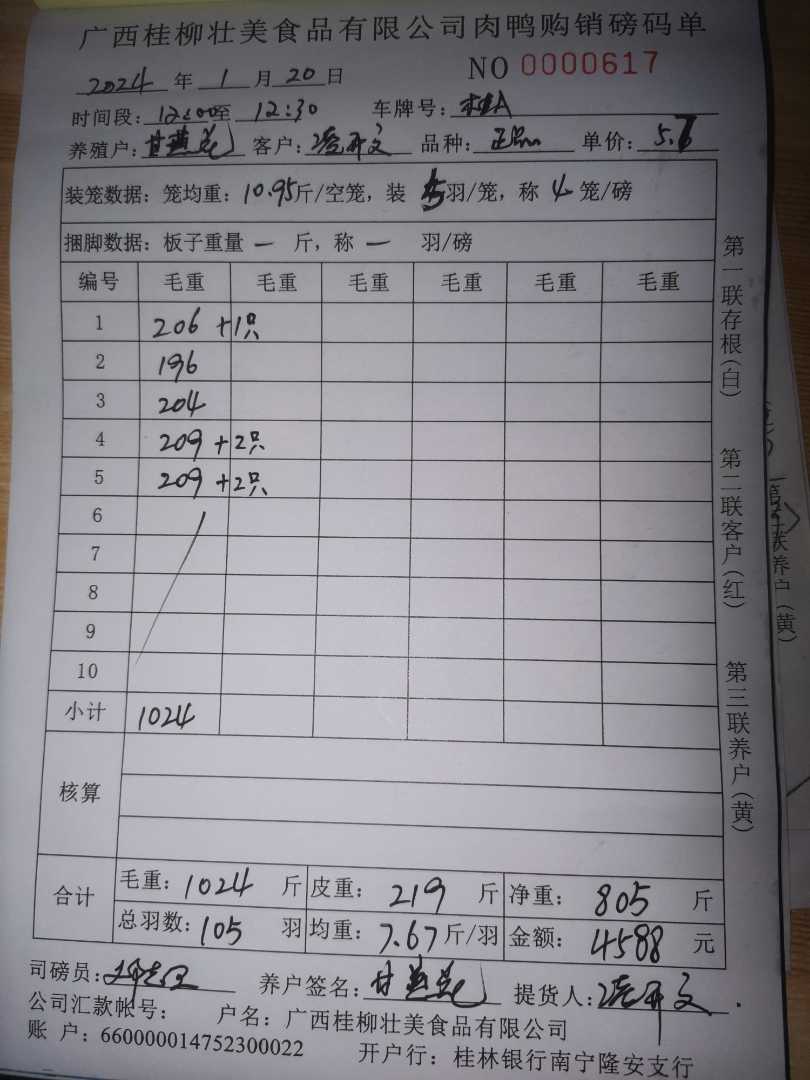 广西桂柳壮美食品有限公司肉鸭购销磅码单
2024 年 1 月 20 日 NO 0000617
时间段: 12:00至 12:30 车牌号: 桂A
养殖户: 甘燕花 客户: 凌开文 品种: 单价: 5.7
装笼数据: 笼均重: 10.95斤/空笼, 装 5羽/笼, 称 4 笼/磅
捆脚数据: 板子重量 一 斤, 称 一 羽/磅
编号 毛重 毛重 毛重 毛重 毛重 毛重
1 206 +1只
2 196
3 204
4 209 +2只
5 209 +2只
6
7
8
9
10
小计 1024
核算
合计 毛重: 1024 斤 皮重: 219 斤 净重: 805 斤
总羽数: 105 羽 均重: 7.67斤/羽 金额: 4588 元
司磅员: 养户签名: 甘燕花 提货人: 凌开文
公司汇款帐号: 户名: 广西桂柳壮美食品有限公司
账 户: 660000014752300022 开户行: 桂林银行南宁隆安支行
第一联存根(白) 第二联客户(红) 第三联养户(黄)
联养户(黄)